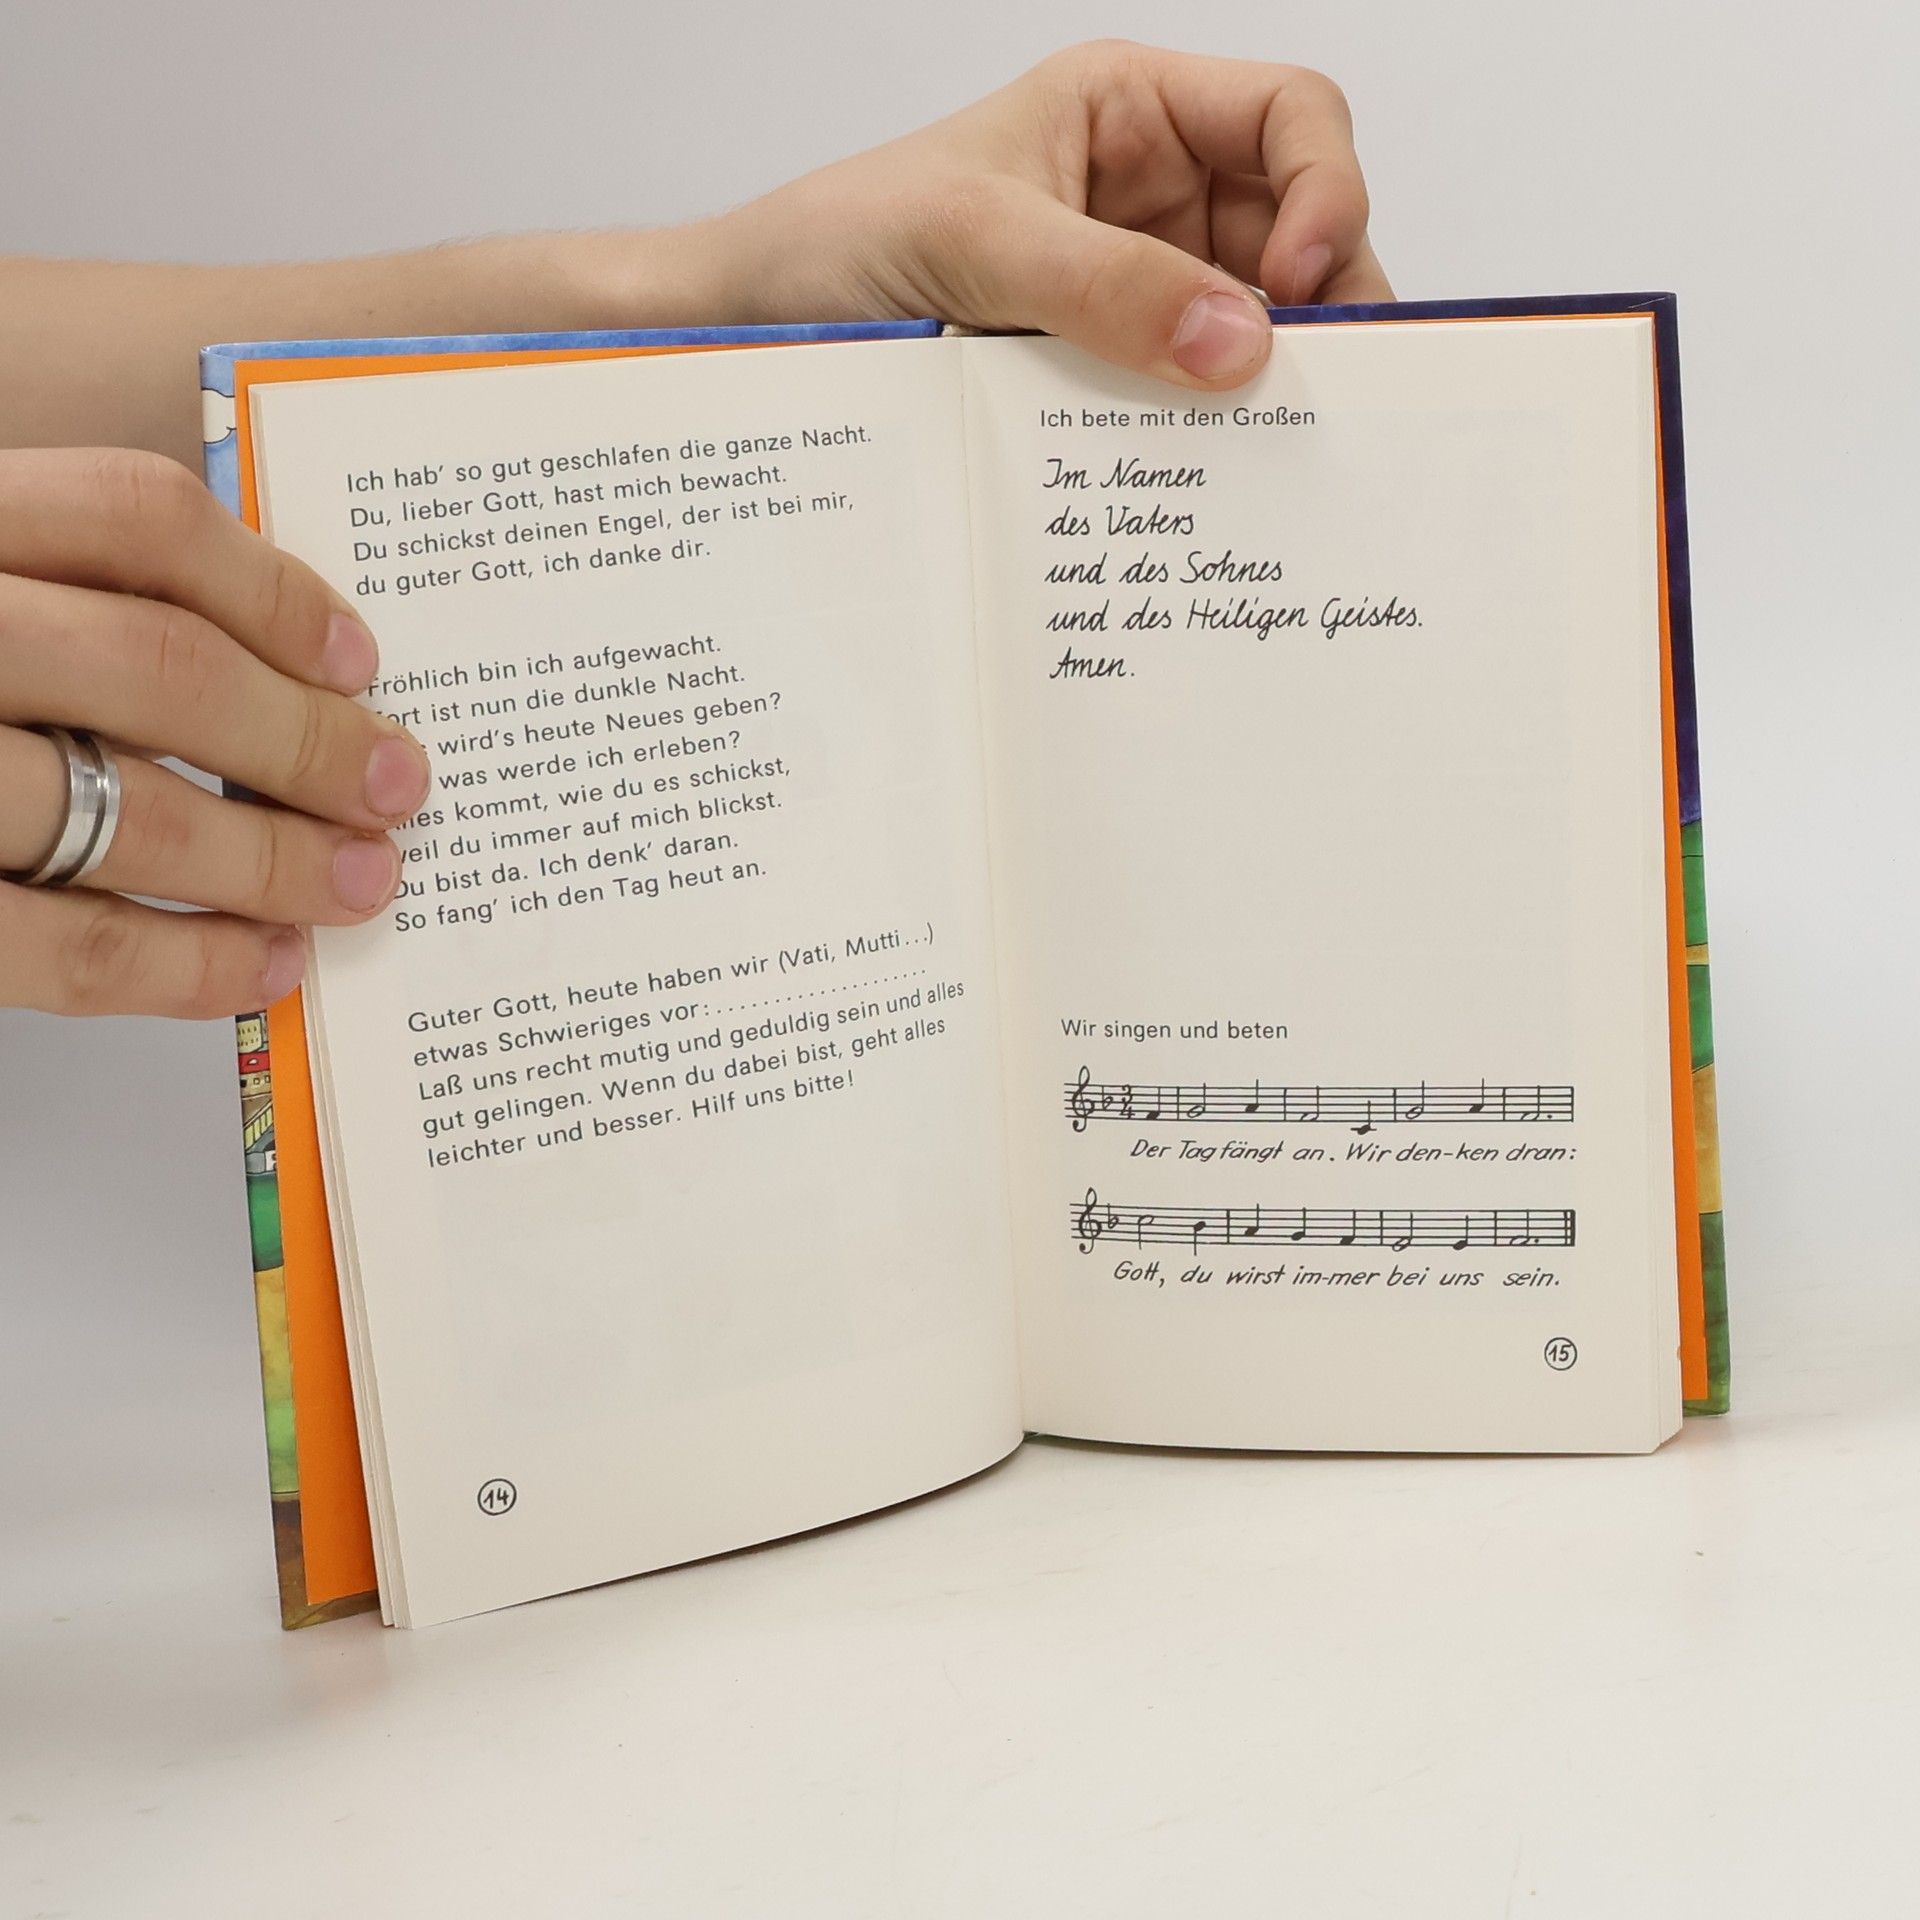 Ich hab' so gut geschlafen die ganze Nacht.
Du, lieber Gott, hast mich bewacht.
Du schickst deinen Engel, der ist bei mir,
du guter Gott, ich danke dir.
Fröhlich bin ich aufgewacht.
ist nun die dunkle Nacht.
wird's heute Neues geben?
was werde ich erleben?
kommt, wie du es schickst,
weil du immer auf mich blickst.
Du bist da. Ich denk' daran.
So fang' ich den Tag heut an.
Guter Gott, heute haben wir (Vati, Mutti...)
etwas Schwieriges vor:....................
Laß uns recht mutig und geduldig sein und alles
gut gelingen. Wenn du dabei bist, geht alles
leichter und besser. Hilf uns bitte!
14
Ich bete mit den Großen
Im Namen
des Vaters
und des Sohnes
und des Heiligen Geistes.
Amen.
Wir singen und beten
3/4
Der Tag fängt an. Wir den-ken dran:
Gott, du wirst im-mer bei uns sein.
15